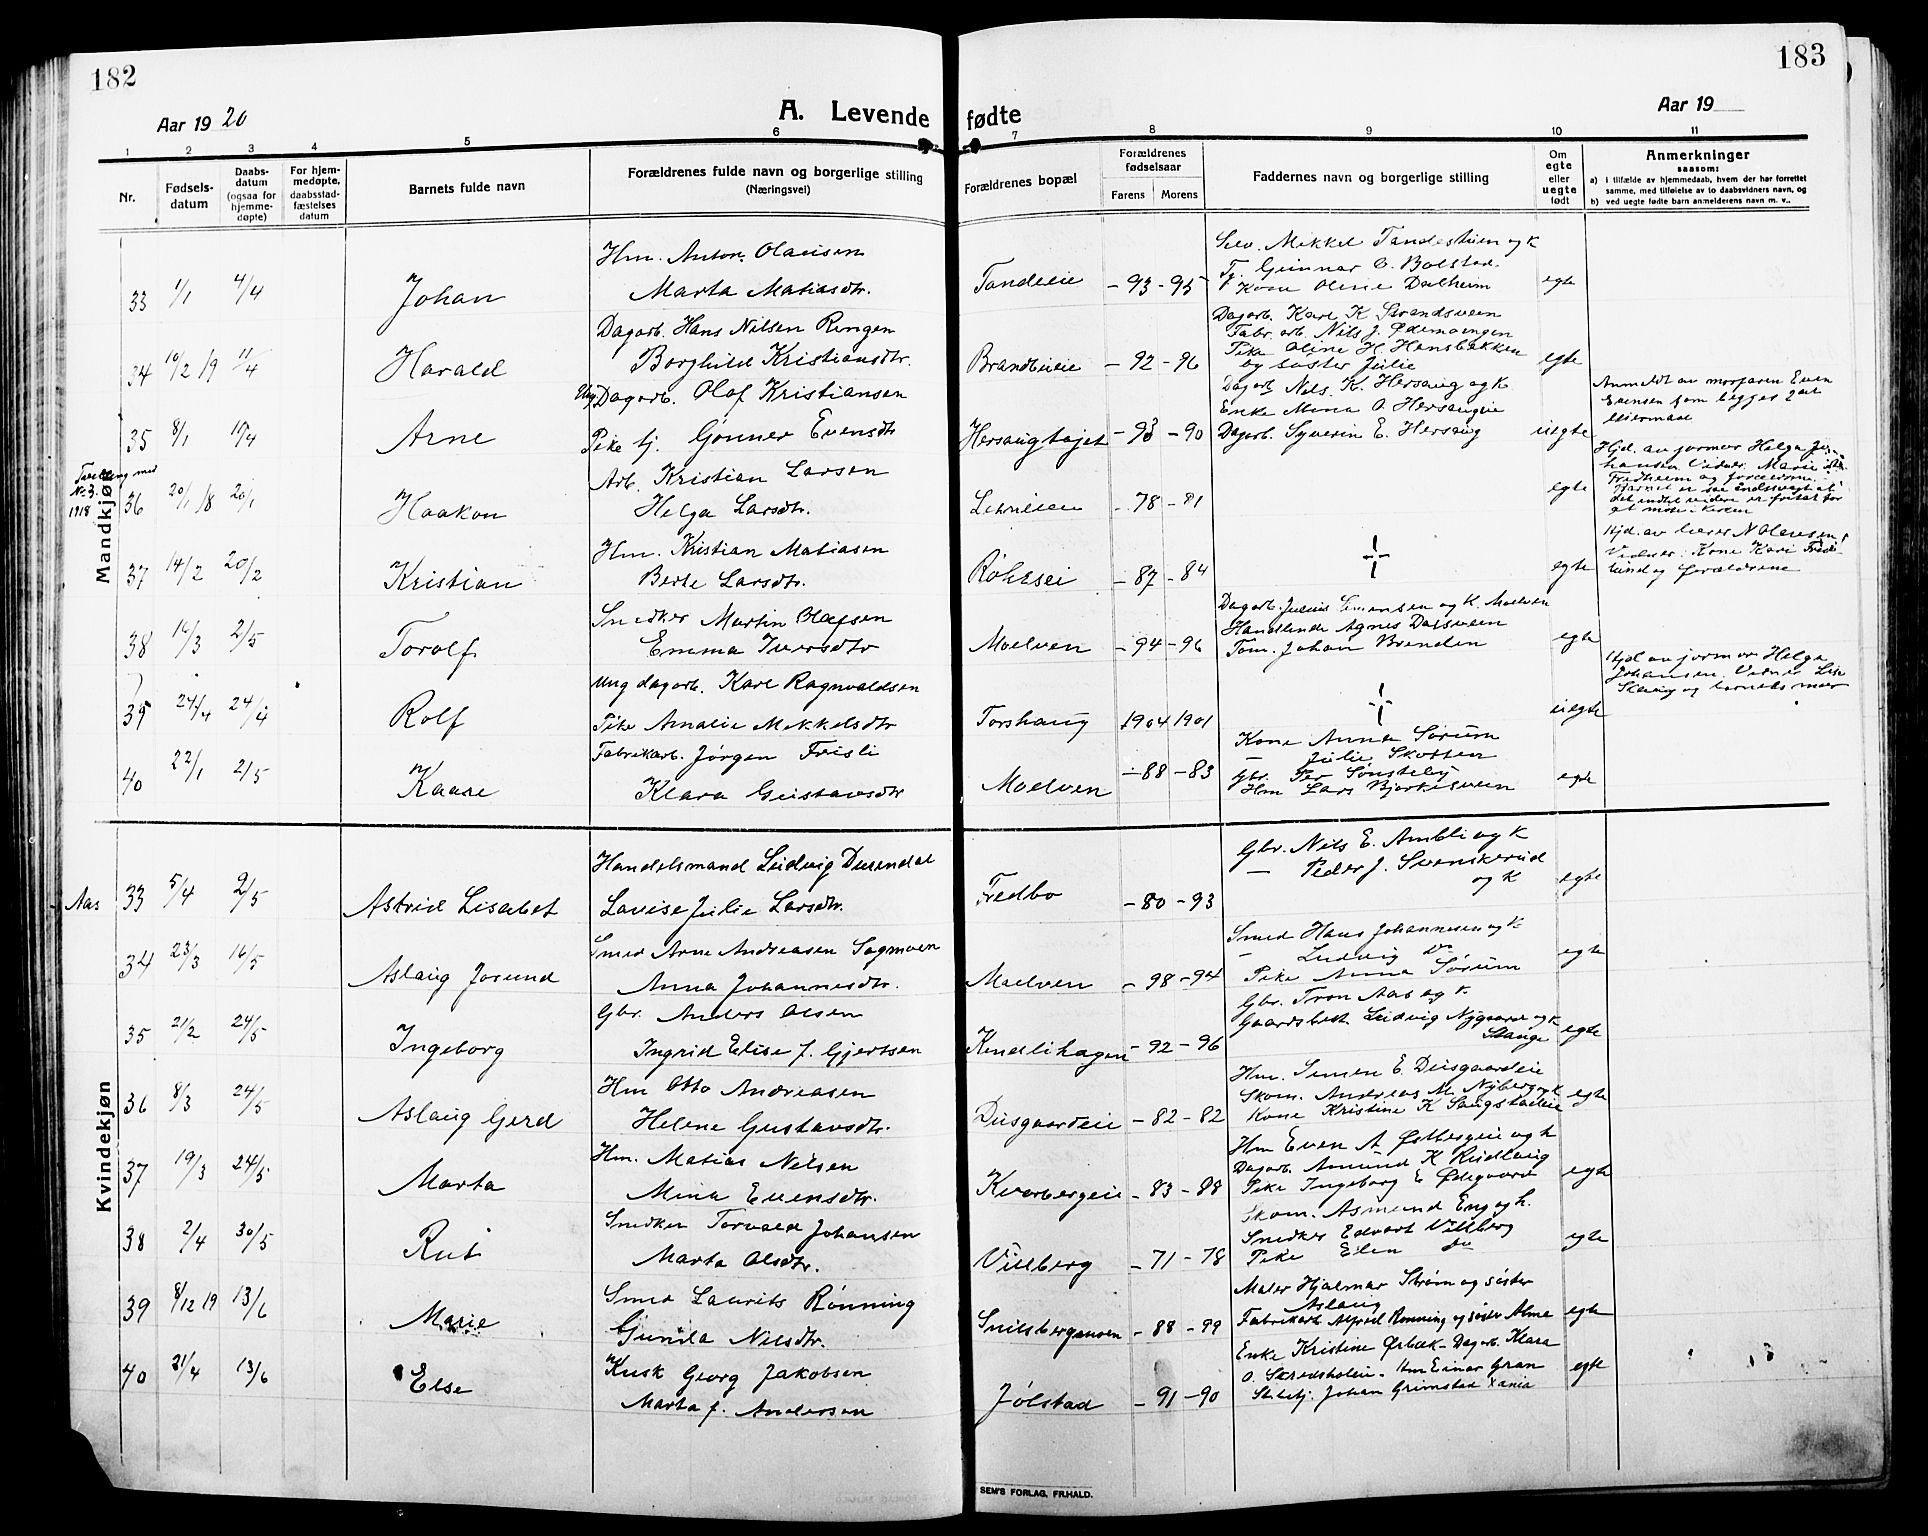 182
183
Aar 1920
A. Levende fødte
Aar 19
1 2 3 4 5 6 7 8 9 10 11
Nr.
Fødsels-
datum
Daabs-
datum
(ogsaa for
hjemme-
døpte)
For hjem-
medøpte,
daabsstad-
fæstelses
datum
Barnets fulde navn
Forældrenes fulde navn og borgerlige stilling
(Næringsvei)
Forældrenes bopæl
Forældrenes
fødselsaar
Farens Morens
Faddernes navn og borgerlige stilling
Om
egte
eller
uegte
født
Anmerkninger
saasom:
a) i tilfælde av hjemmedaab, hvem der har forrettet
samme, med tilføielse av to daabsvidners navn, og
b) ved uegte fødte barn anmelderens navn m. v..
Mandkjøn
33 1/1 4/4 Johan
Hm. Anton Olausen
Marta Matiasdtr.
Tandeeie -93 -95
Selv. Mikkel Tandestuen og k
Tj. Gunnar E. Bolstad.
Kone Oline Dalheim
egte
34 10/2 19 11/4 Harald
Dagarb. Hans Nilsen Ringen
Borghild Kristiansdtr.
Brandteie -92 -96
Dagarb. Karl K Strandsveen
Fabr arb. Nils J. Ødemoengen
Pike Oline H. Hansbakken
og søster Julie
egte
35 8/1 11/4 Arne
Ung Dagarb. Olaf Kristiansen
Pike tj. Gønner Evensdtr
Hersaugtajet -93 -90
Dagarb Nils. K. Hersaug og k.
Enke Mina O. Hersaugeie
Dagarb. Syverin E. Hersaug
uegte
Anmeldt av morfaren Even
Evensen som begges 2det
leiermaal
Tvilling med
No 3.
1918
36 20/1 18 20/1 Haakon
Arb. Kristian Larsen
Helga Larsdtr.
-78 -81
egte
Hjd. av jormor Helga Jo-
hansen. Vidner Marie
Fredheim og forældrene.
Barnet er saa åndssvagt at
det indtil videre er fritat for
at møte i kirken
37 14/2 20/2 Kristian
Hm. Kristian Matiasen
Berte Larsdtr.
-87 -84
egte
Hjd. av lærer N Olausen
Vidner: Kone Kari
lund og forældrene
38 16/3 2/5 Torolf
Snedker Martin Olafsen
Emma Iversdtr
Moelven -94 -96
Dagarb. Julius Simensen og k. Moelven
Handlende Agnes Dalsveen
Tom. Johan Brenden
egte
39 24/4 24/4 Rolf
Ung dagarb. Karl Ragnvaldsen
Pike Amalie Mikkelsdtr
Torshaug 1904 1901
uegte
Hjd av jormor Helga
Johansen. Vidner Lise
Skaug og barnets mor
40 22/1 2/5 Kaare
Fabrikarb. Jørgen Frisli
Klara Gustavsdtr
Moelven -88 -83
Kone Anna Sørum
— Julie Skotten
Gbr. Per Sønsteby
Hm Lars Bjørkesveen
egte
Kvindekjøn
Aas
33 5/4 2/5 Astrid Lisabet
Handelsmand Ludvig Durendal
Lovise Julie Larsdtr.
Fredbo -80 -93
Gbr. Nils E. Ambli og k
— Peder J. Svenskerud
og k
egte
34 23/3 16/5 Aslaug Jorund
Smed Arne Andreasen Sagmoen
Anna Johannesdtr.
Moelven -98 -94
Smed Hans Johannesen og k.
— Ludvig Do
Pike Anna Sørum
egte
35 21/2 24/5 Ingeborg
Gbr. Anders Olsen
Ingrid Elise f. Gjertsen
Kindlihagen -92 -96
Gbr. Tron Aas og k.
Gaardsbest. Ludvig Nygaard og k
Stange
egte
36 8/3 24/5 Aslaug Gerd
Hm Otto Andreasen
Helene Gustavsdtr.
Diisgaardeie -82 -82
Hm. Simen E. Diisgaardeie
Skom. Andreas M. Nyberg og k
Kone Kristine K Saugstadeie
egte
37 19/3 24/5 Marta
Hm. Matias Nilsen
Mina Evensdtr.
Kvarbergeie -83 -88
Hm Even A. Østbergeie og k
Dagarb. Amund K Rudlaug
Pike Ingeborg E Ødegaard
egte
38 2/4 30/5 Rut
Snedker Torvald Johansen
Marta Olsdtr.
Vilberg -71 -78
Skom. Asmund Eng og k.
Snedker Edvart Vilberg
Pike Elen Do
egte
39 8/12 19 13/6 Marie
Smed Laurits Rønning
Gunda Nilsdtr.
-88 -99
Maler Hjalmar Strøm og søster
Aslaug
Fabrikarb Alfred Rønning og søster Alma
egte
40 21/4 13/6 Else
Kusk Georg Jakobsen
Marta f. Andersen
Jølstad -91 -90
Enke Kristine Ørbæk - Dagarb. Klara
O. Skredsholeie - Hm Einar Gran
Johan Grimstad Xania
egte
SEM'S FORLAG, FR.HALD.